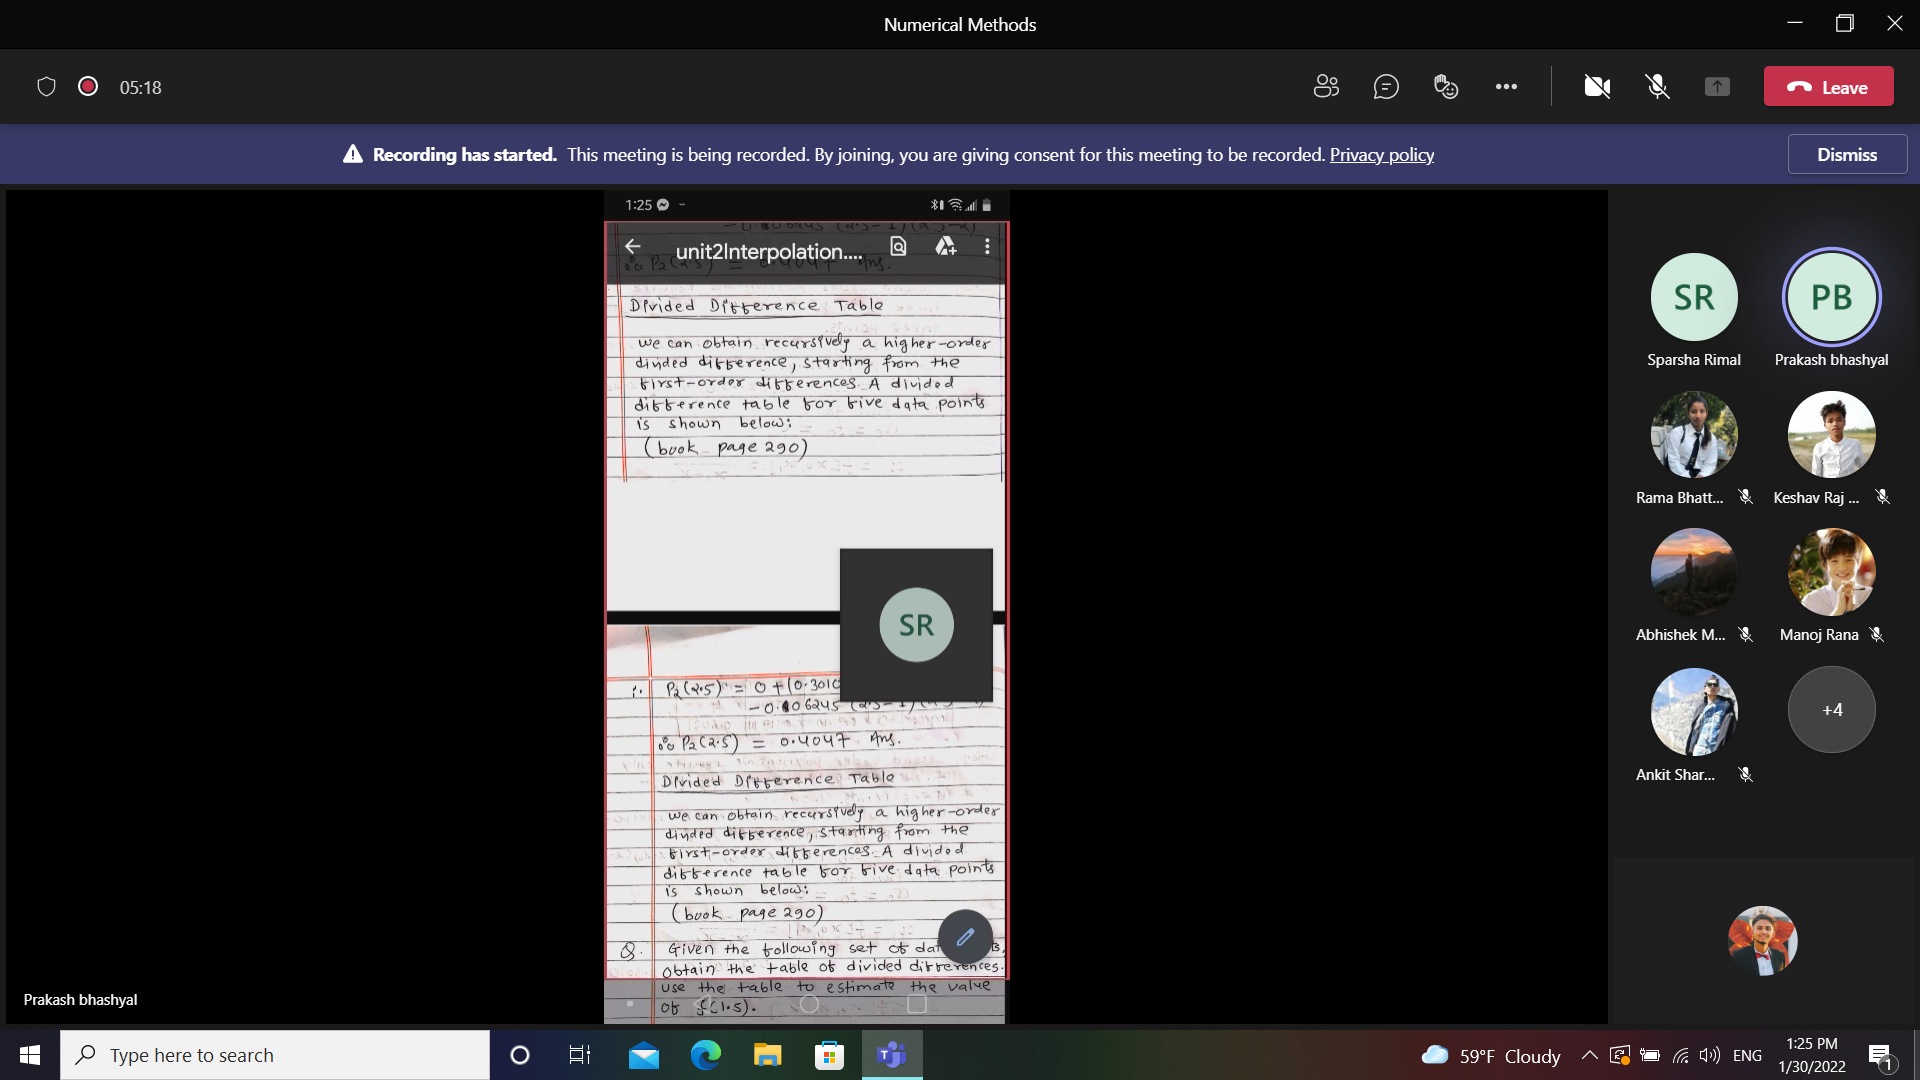 Numerical Methods
05:18
Leave
Recording has started. This meeting is being recorded. By joining, you are giving consent for this meeting to be recorded. Privacy policy
Dismiss
1:25
unit2Interpolation....
∴ P2(2.5) = 0.4047 Ans.
Divided Difference Table
we can obtain recursively a higher-order
divided difference, starting from the
first-order differences. A divided
difference table for five data points
is shown below:
(book page 290)
SR
∴ P2(2.5) = 0 + (0.3010
-0.06245 (2.5-1)
∴ P2(2.5) = 0.4047 Ans.
Divided Difference Table
we can obtain recursively a higher-order
divided difference, starting from the
first-order differences. A divided
difference table for five data points
is shown below:
(book page 290)
Q. Given the following set of dat
obtain the table of divided differences.
use the table to estimate the value
of f(1.5).
Prakash bhashyal
SR
PB
Sparsha Rimal
Prakash bhashyal
Rama Bhatt...
Keshav Raj ...
Abhishek M...
Manoj Rana
Ankit Shar...
+4
Type here to search
59°F Cloudy
ENG
1:25 PM
1/30/2022
1